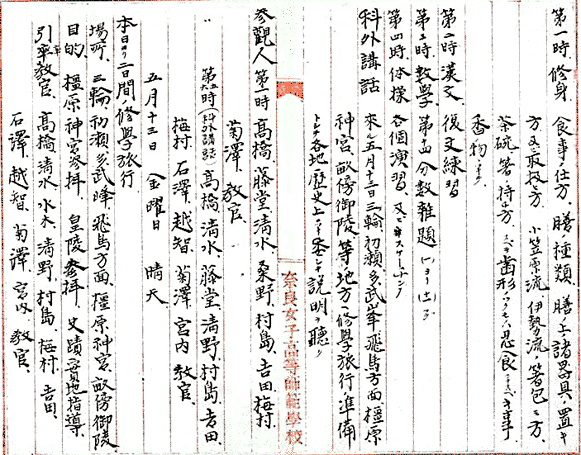 第一時、修身、食事ノ仕方、膳ノ種類、膳ノ上諸器具ノ置キ
方及取扱方、小笠原流、伊勢流ノ箸包ミ方
茶碗、箸ノ持チ方
香物
第二時 漢文、復文練習
第三時、数学、分数雑題
第四時、体操 各個演習
科外講話 来ル五月十三日三輪初瀬多武峯飛鳥方面橿原
神宮畝傍御陵等地方ヘ修学旅行準備
トシテ各地歴史上ノ説明ヲ聴ク
奈良女子高等師範學校
参観人 第一時 高橋、藤堂、清水、桑野、村島、吉田、梅村、
菊澤 教官
第六時(科外講話) 高橋、清水、藤堂、清野、村島、吉田、
梅村、石澤、越智、菊澤、宮内 教官
五月十三日 金曜日 晴天
本日ヨリ二日間ノ修學旅行
場所、三輪初瀬多武峰飛鳥方面、橿原神宮、畝傍御陵
目的、橿原神宮参拝、皇陵参拝、史蹟実地指導、
引率教官、高橋、清水、水木、清野、村島、梅村、吉田、
石澤、越智、菊澤、宮内 教官